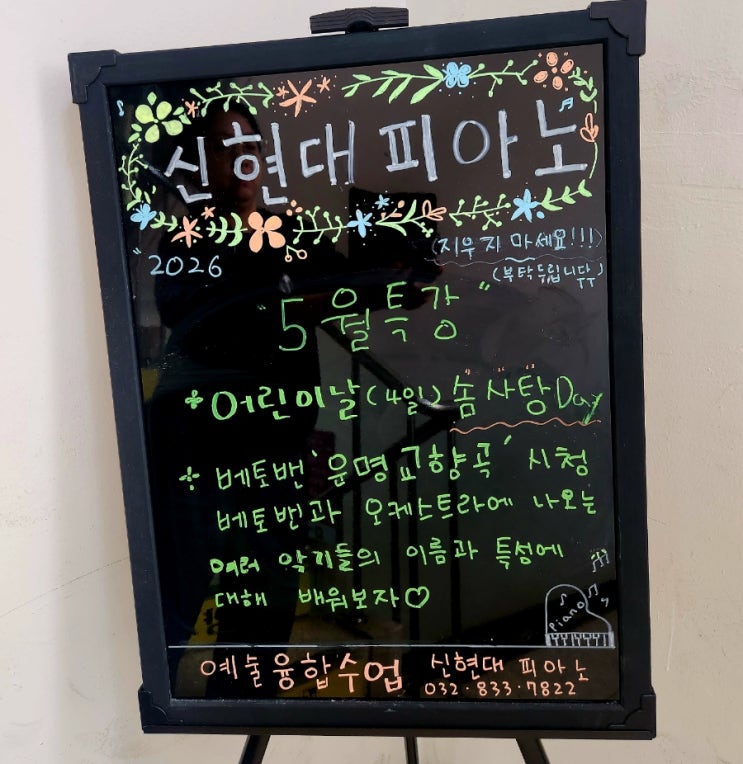 신현대 피아노
(지우지 마세요!!!)
(부탁드립니다)
"2026
"5월특강"
* 어린이날(4일) 솜사탕Day
÷ 베토벤 '운명교향곡' 시청
베토벤과 오케스트라에 나오는
여러 악기들의 이름과 특성에
대해 배워보자♡
Piano
예술융합수업 신현대 피아노
032·833·7822